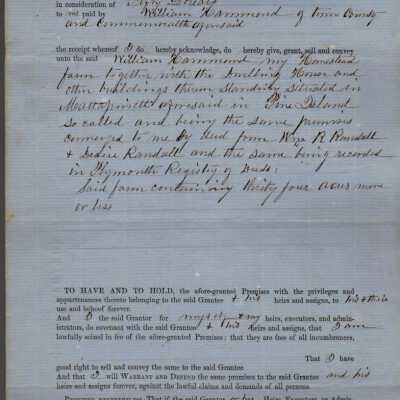 in consideration of Fifty Dollars
to me paid by William Hammond of town County
and Commonwealth aforesaid
the receipt whereof I do hereby acknowledge, do hereby give, grant, sell and convey
unto the said William Hammond my Homestead
farm together with the Dwelling House and
other buildings thereon Standing Situated in
Mattapoisett aforesaid in Pine Island
So called and being the same premises
conveyed to me by deed from Wm R Randall
& Desire Randall and the same being recorded
in Plymouth Registry of Deeds:
Said farm containing thirty four acres more
or less
TO HAVE AND TO HOLD, the afore-granted Premises with the privileges and
appurtenances thereto belonging to the said Grantee & his heirs and assigns, to his & their
use and behoof forever.
And I the said Grantor for myself & my heirs, executors, and admin-
istrators, do covenant with the said Grantee & his heirs and assigns, that I am
lawfully seized in fee of the afore-granted Premises; that they are free of all incumbrances,
That I have
good right to sell and convey the same to the said Grantee
And that I will WARRANT AND DEFEND the same premises to the said Grantee and his
heirs and assigns forever, against the lawful claims and demands of all persons.